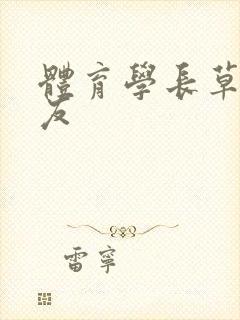 體育學長草
友
雷寧